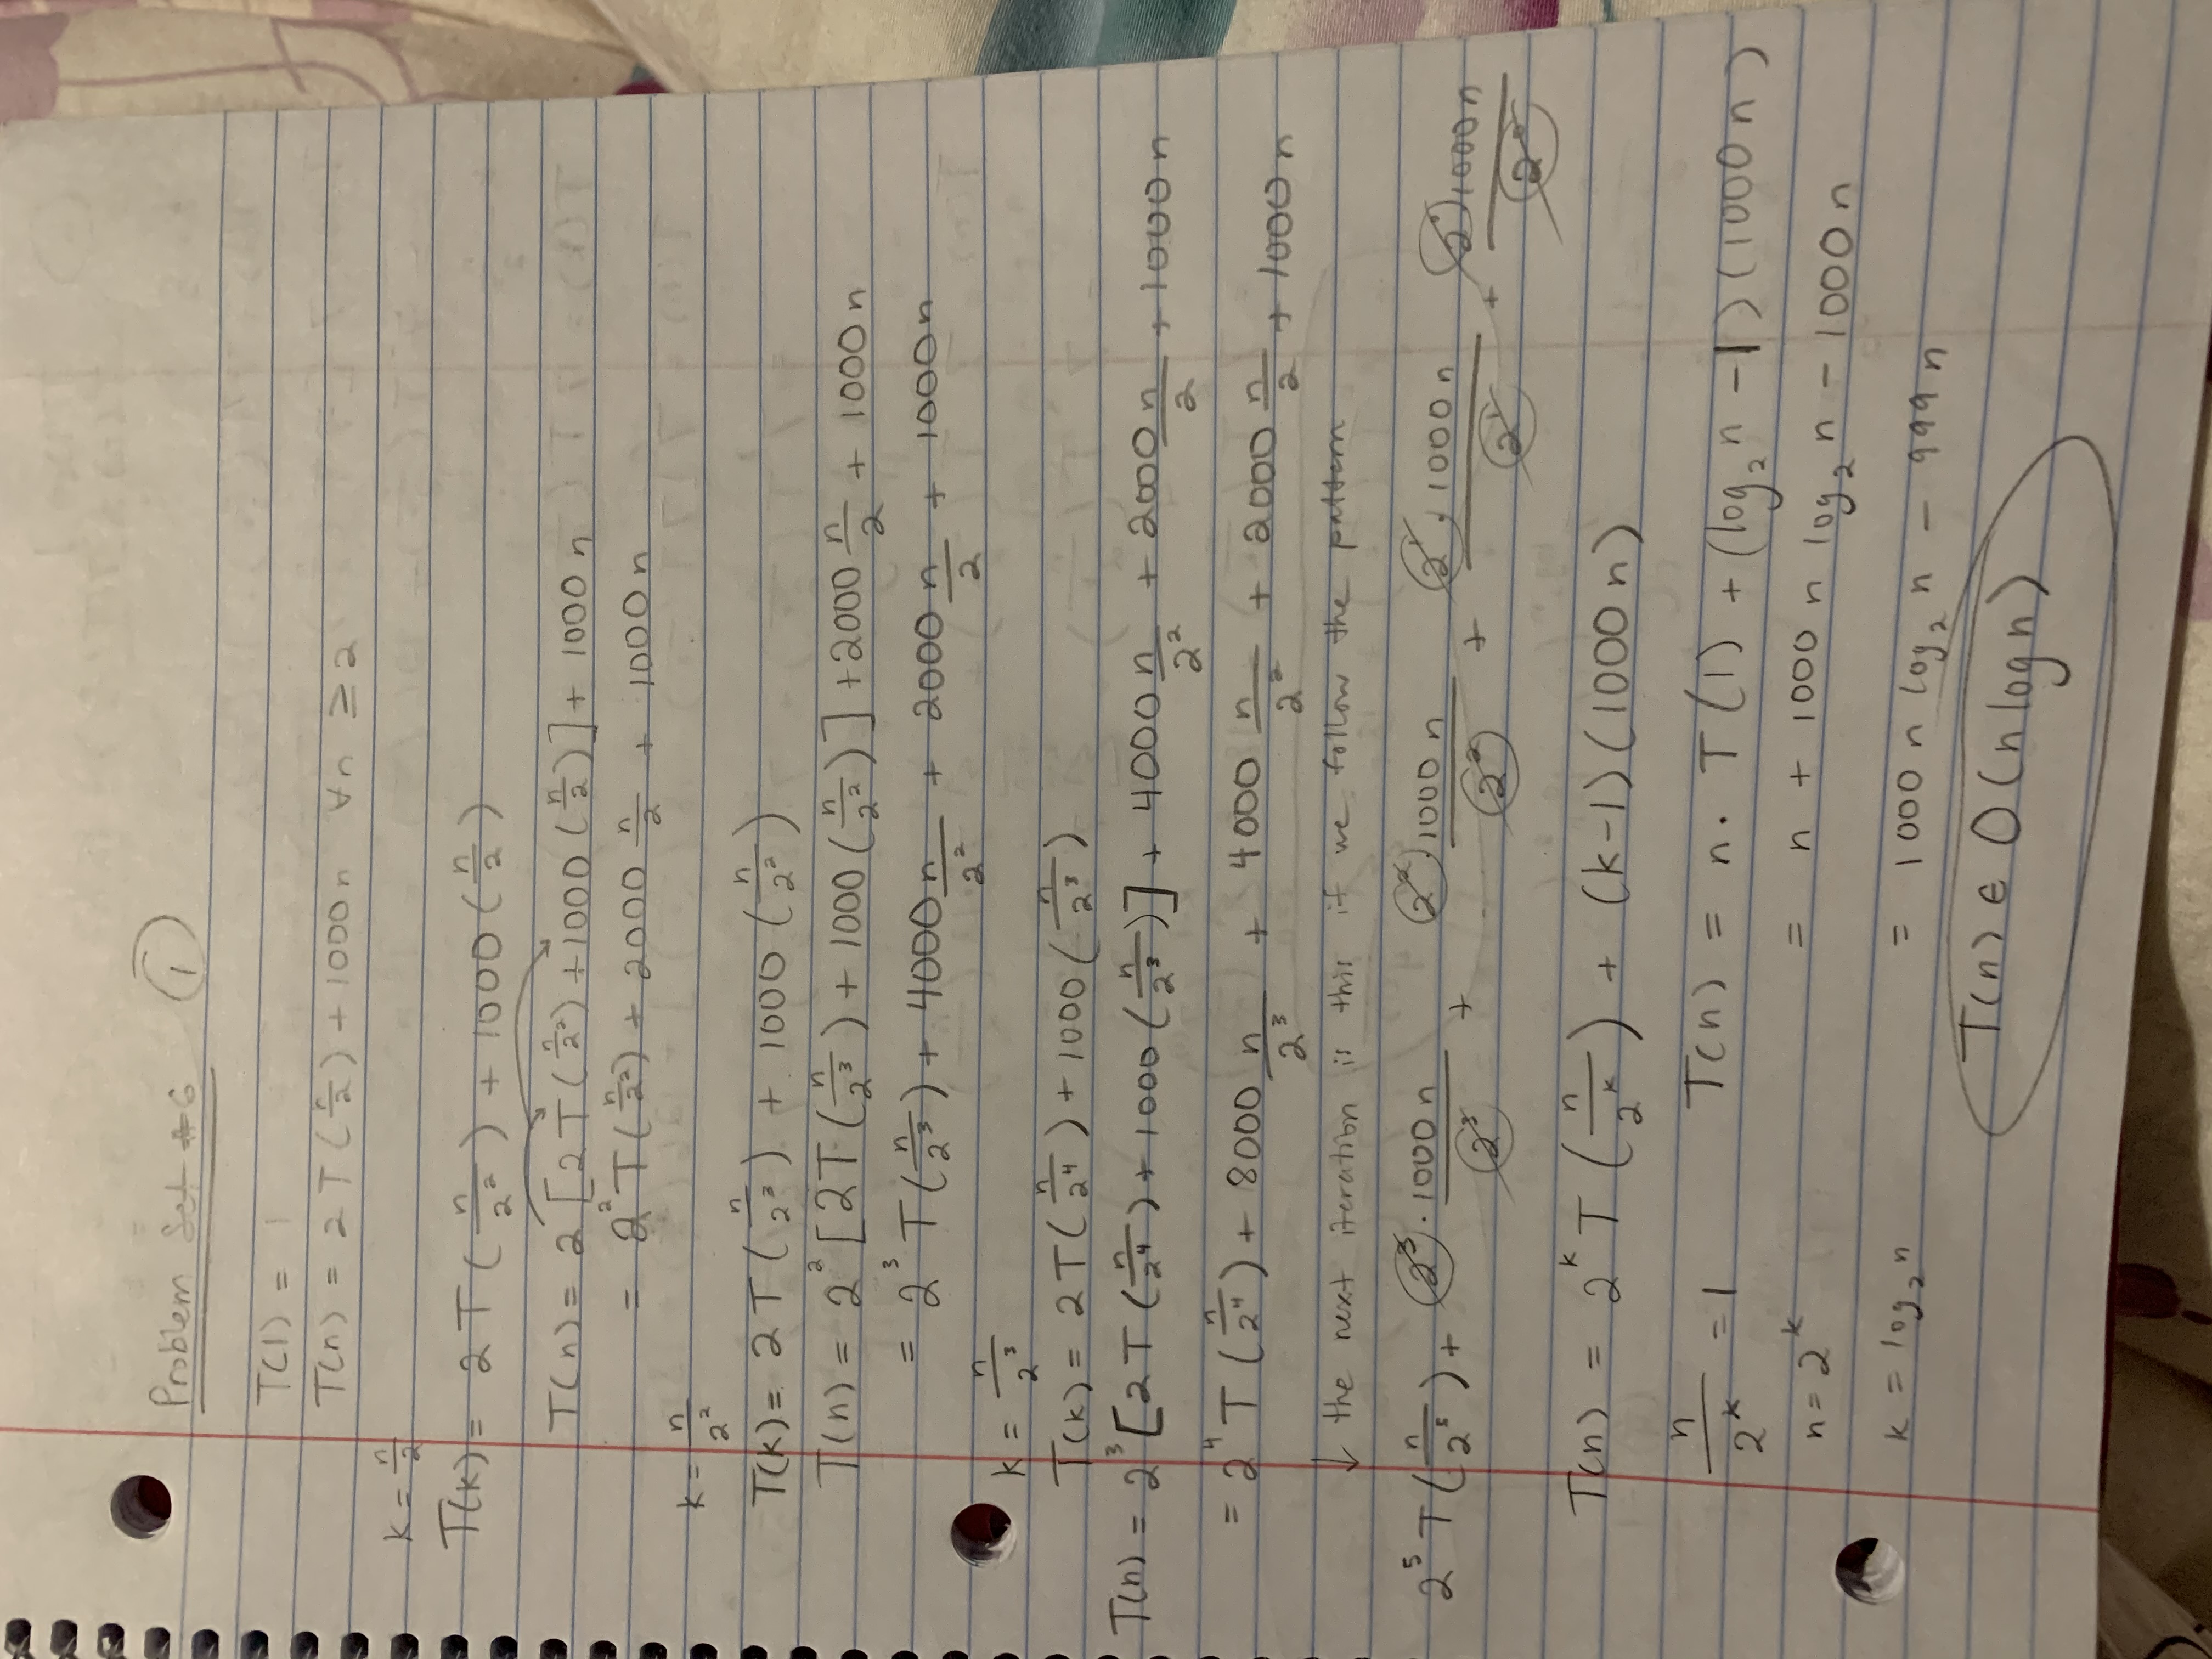 Problem Set #6 ①
T(1) = 1
T(n) = 2T(n/2) + 1000n ∀n ≥ 2
k = n/2
T(k) = 2T(n/2²) + 1000(n/2)
T(n) = 2[2T(n/2²) + 1000(n/2)] + 1000n
= 2²T(n/2²) + 2000 n/2 + 1000n
k = n/2²
T(k) = 2T(n/2³) + 1000(n/2²)
T(n) = 2²[2T(n/2³) + 1000(n/2²)] + 2000 n/2 + 1000n
= 2³T(n/2³) + 4000 n/2² + 2000 n/2 + 1000n
k = n/2³
T(k) = 2T(n/2⁴) + 1000(n/2³)
T(n) = 2³[2T(n/2⁴) + 1000(n/2³)] + 4000 n/2² + 2000 n/2 + 1000n
= 2⁴T(n/2⁴) + 8000 n/2³ + 4000 n/2² + 2000 n/2 + 1000n
↓ the next iteration is this if we follow the pattern
2⁵T(n/2⁵) + 2³·1000n/2³ + 2²·1000n/2² + 2¹·1000n/2¹ + 2⁰·1000n/2⁰
T(n) = 2ᵏT(n/2ᵏ) + (k-1)(1000n)
n/2ᵏ = 1 T(n) = n · T(1) + (log₂n - 1)(1000n)
n = 2ᵏ = n + 1000n log₂n - 1000n
k = log₂n = 1000n log₂n - 999n
T(n) ∈ O(nlogn)